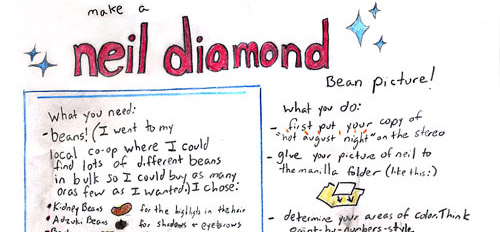 make a
neil diamond
Bean picture!
What you need:
-beans! (I went to my
local co-op where I could
find lots of different beans
in bulk so I could buy as many
or as few as I wanted.) I chose:
• Kidney Beans for the highlights in the hair
• Adzuki Beans for shadows + eyebrows
What you do:
- first put your copy of
"hot august night" on the stereo
- glue your picture of neil to
the manilla folder (like this:)
- determine your areas of color. Think
paint-by-numbers-style